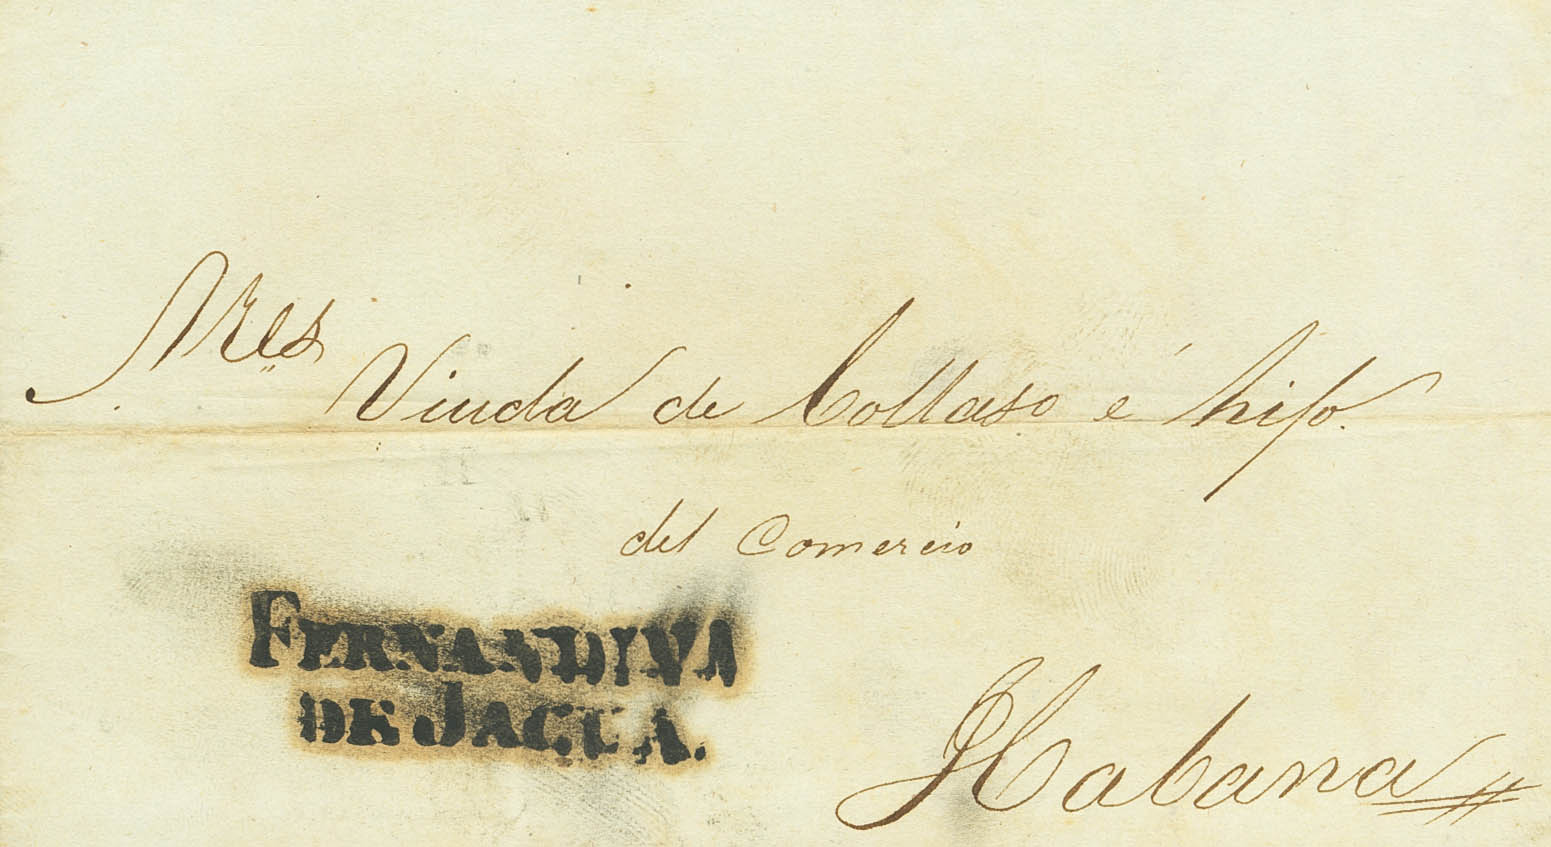 Sres Viuda de Collaso é hijo.
del Comercio
FERNANDINA
DE JAGUA.
Habana